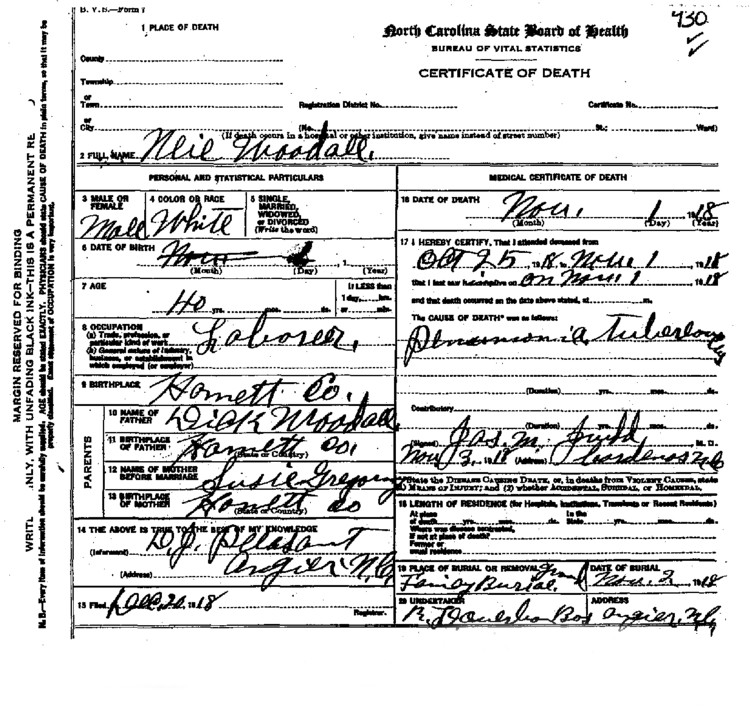 B. V. S.—Form 7
930
1 PLACE OF DEATH
North Carolina State Board of Health
BUREAU OF VITAL STATISTICS
CERTIFICATE OF DEATH
County
Township
or
Town
Registration District No.
Certificate No.
or
City
(No.
St.;
Ward)
(If death occurs in a hospital or other institution, give name instead of street number)
2 FULL NAME Neil Woodall
PERSONAL AND STATISTICAL PARTICULARS
3 MALE OR FEMALE Male
4 COLOR OR RACE White
5 SINGLE, MARRIED, WIDOWED, or DIVORCED (Write the word)
6 DATE OF BIRTH
(Month) (Day) (Year)
7 AGE
If LESS than
1 day,
40 yrs.
8 OCCUPATION
(a) Trade, profession, or particular kind of work
(b) General nature of industry, business, or establishment in which employed (or employer)
Laborer,
9 BIRTHPLACE Harnett Co.
PARENTS
10 NAME OF FATHER Dick Woodall
11 BIRTHPLACE OF FATHER Harnett Co,
(State or Country)
12 NAME OF MOTHER BEFORE MARRIAGE Susie Gregory
13 BIRTHPLACE OF MOTHER Harnett Co
(State or Country)
14 THE ABOVE IS TRUE TO THE BEST OF MY KNOWLEDGE
(Informant) D.J. Pleasant
(Address) Angier N.C
15 Filed Dec. 20, 1918
Registrar.
MEDICAL CERTIFICATE OF DEATH
16 DATE OF DEATH Nov. 1 1918
(Month) (Day) (Year)
17 I HEREBY CERTIFY, That I attended deceased from
Oct 25 1918 Nov 1 1918
that I last saw alive on Nov 1 1918
and that death occurred on the date above stated, at m.
The CAUSE OF DEATH* was as follows:
(Duration) yrs. mos. ds.
Contributory
(Duration) yrs. mos. ds.
(Signed) Jas. M. Judd M. D.
Nov 3, 1918 (Address) Cardenas N.C
*State the DISEASE CAUSING DEATH, or, in deaths from VIOLENT CAUSES, state
(1) MEANS OF INJURY; and (2) whether ACCIDENTAL, SUICIDAL, OR HOMICIDAL.
18 LENGTH OF RESIDENCE (for Hospitals, Institutions, Transients or Recent Residents)
At place of death
In the State
Where was disease contracted, if not at place of death?
Former or usual residence
19 PLACE OF BURIAL OR REMOVAL
Family Burial
DATE OF BURIAL
Nov. 2, 1918
20 UNDERTAKER
ADDRESS
Angier, N.C,
MARGIN RESERVED FOR BINDING
WITH UNFADING BLACK INK—THIS IS A PERMANENT RE
N. B.—Every item of information should be carefully supplied. AGE should be stated EXACTLY. PHYSICIANS should state CAUSE OF DEATH in plain terms, so that it may be
properly classified. Exact statement of OCCUPATION is very important.